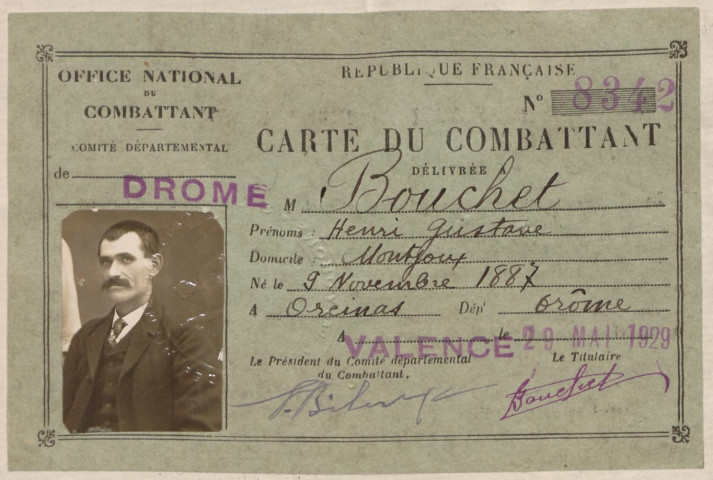 OFFICE NATIONAL
DU
COMBATTANT
COMITÉ DÉPARTEMENTAL
de DROME
REPUBLIQUE FRANÇAISE
N° 8342
CARTE DU COMBATTANT
DÉLIVRÉE
M Bouchet
Prénoms : Henri Gustave
Domicile : Montjoux
Né le 9 Novembre 1887
A Orcinas Dép' Drôme
A VALENCE le 29 MAI 1929
Le Président du Comité départemental
du Combattant,
Le Titulaire
Bouchet